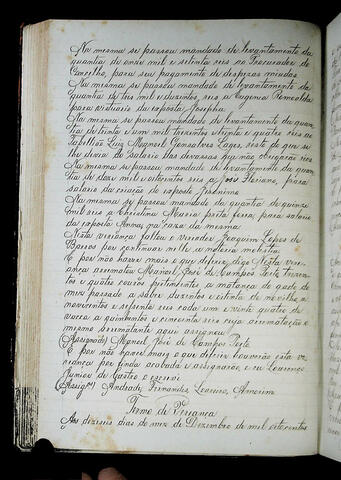 Na mesma se passou mandado de levantamento da
quantia de onze mil e setenta reis ao Procurador do
Concelho, para seu pagamento de despezas miudas
Na mesma se passou mandado de levantamento da
quantia de tres mil e duzentos reis a Eugenia Romoalda
para vistuais da exposta Josepha
Na mesma se passou mandado de levantamento da quan
tia de trinta e um mil trezentos e trinta e quatro reis ao
Tabellião Luiz Manoel Gonsalves Lages, resto de que se
lhe divia do salario das devassas que não obrigação
Na mesma se passou mandado de levantamento da quan
tia de doze mil e oitocentos reis a José Floriano, para
salario da criação do exposto Jeronimo
Na mesma se passou mandado da quantia de quinze
mil reis a Christina Maria preta forra, para salario
da exposta Anna, na caza da mesma
Nesta vereança faltou o Vereador Joaquim Lopes de
Barros por continuar na mesma molestia
E por não haver mais o que diferir, digo Nesta vere
ança arrematou Manoel José de Campos Porto trezen
tos e quatro couros pertencentes a matança do gado do
mez passado a saber duzentos e oitenta de novilho a
novecentos e sessenta reis cada um e vinte quatro de
vacca a quinhentos e cincoenta reis cuja arrematação o
mesmo arrematante aqui assignou
(Assignado) Manoel José de Campos Porto
E por não haver mais o que diferir houverão esta ve
reança por finda acabada e assignarão, e eu Lourenço
Junior de Castro o escrevi
(Assigᵒˢ) Andrade, Fernandes, Loureiro, Amorim
Termo de Vereança
Aos dezeseis dias do mez de Dezembro de mil oitocentos